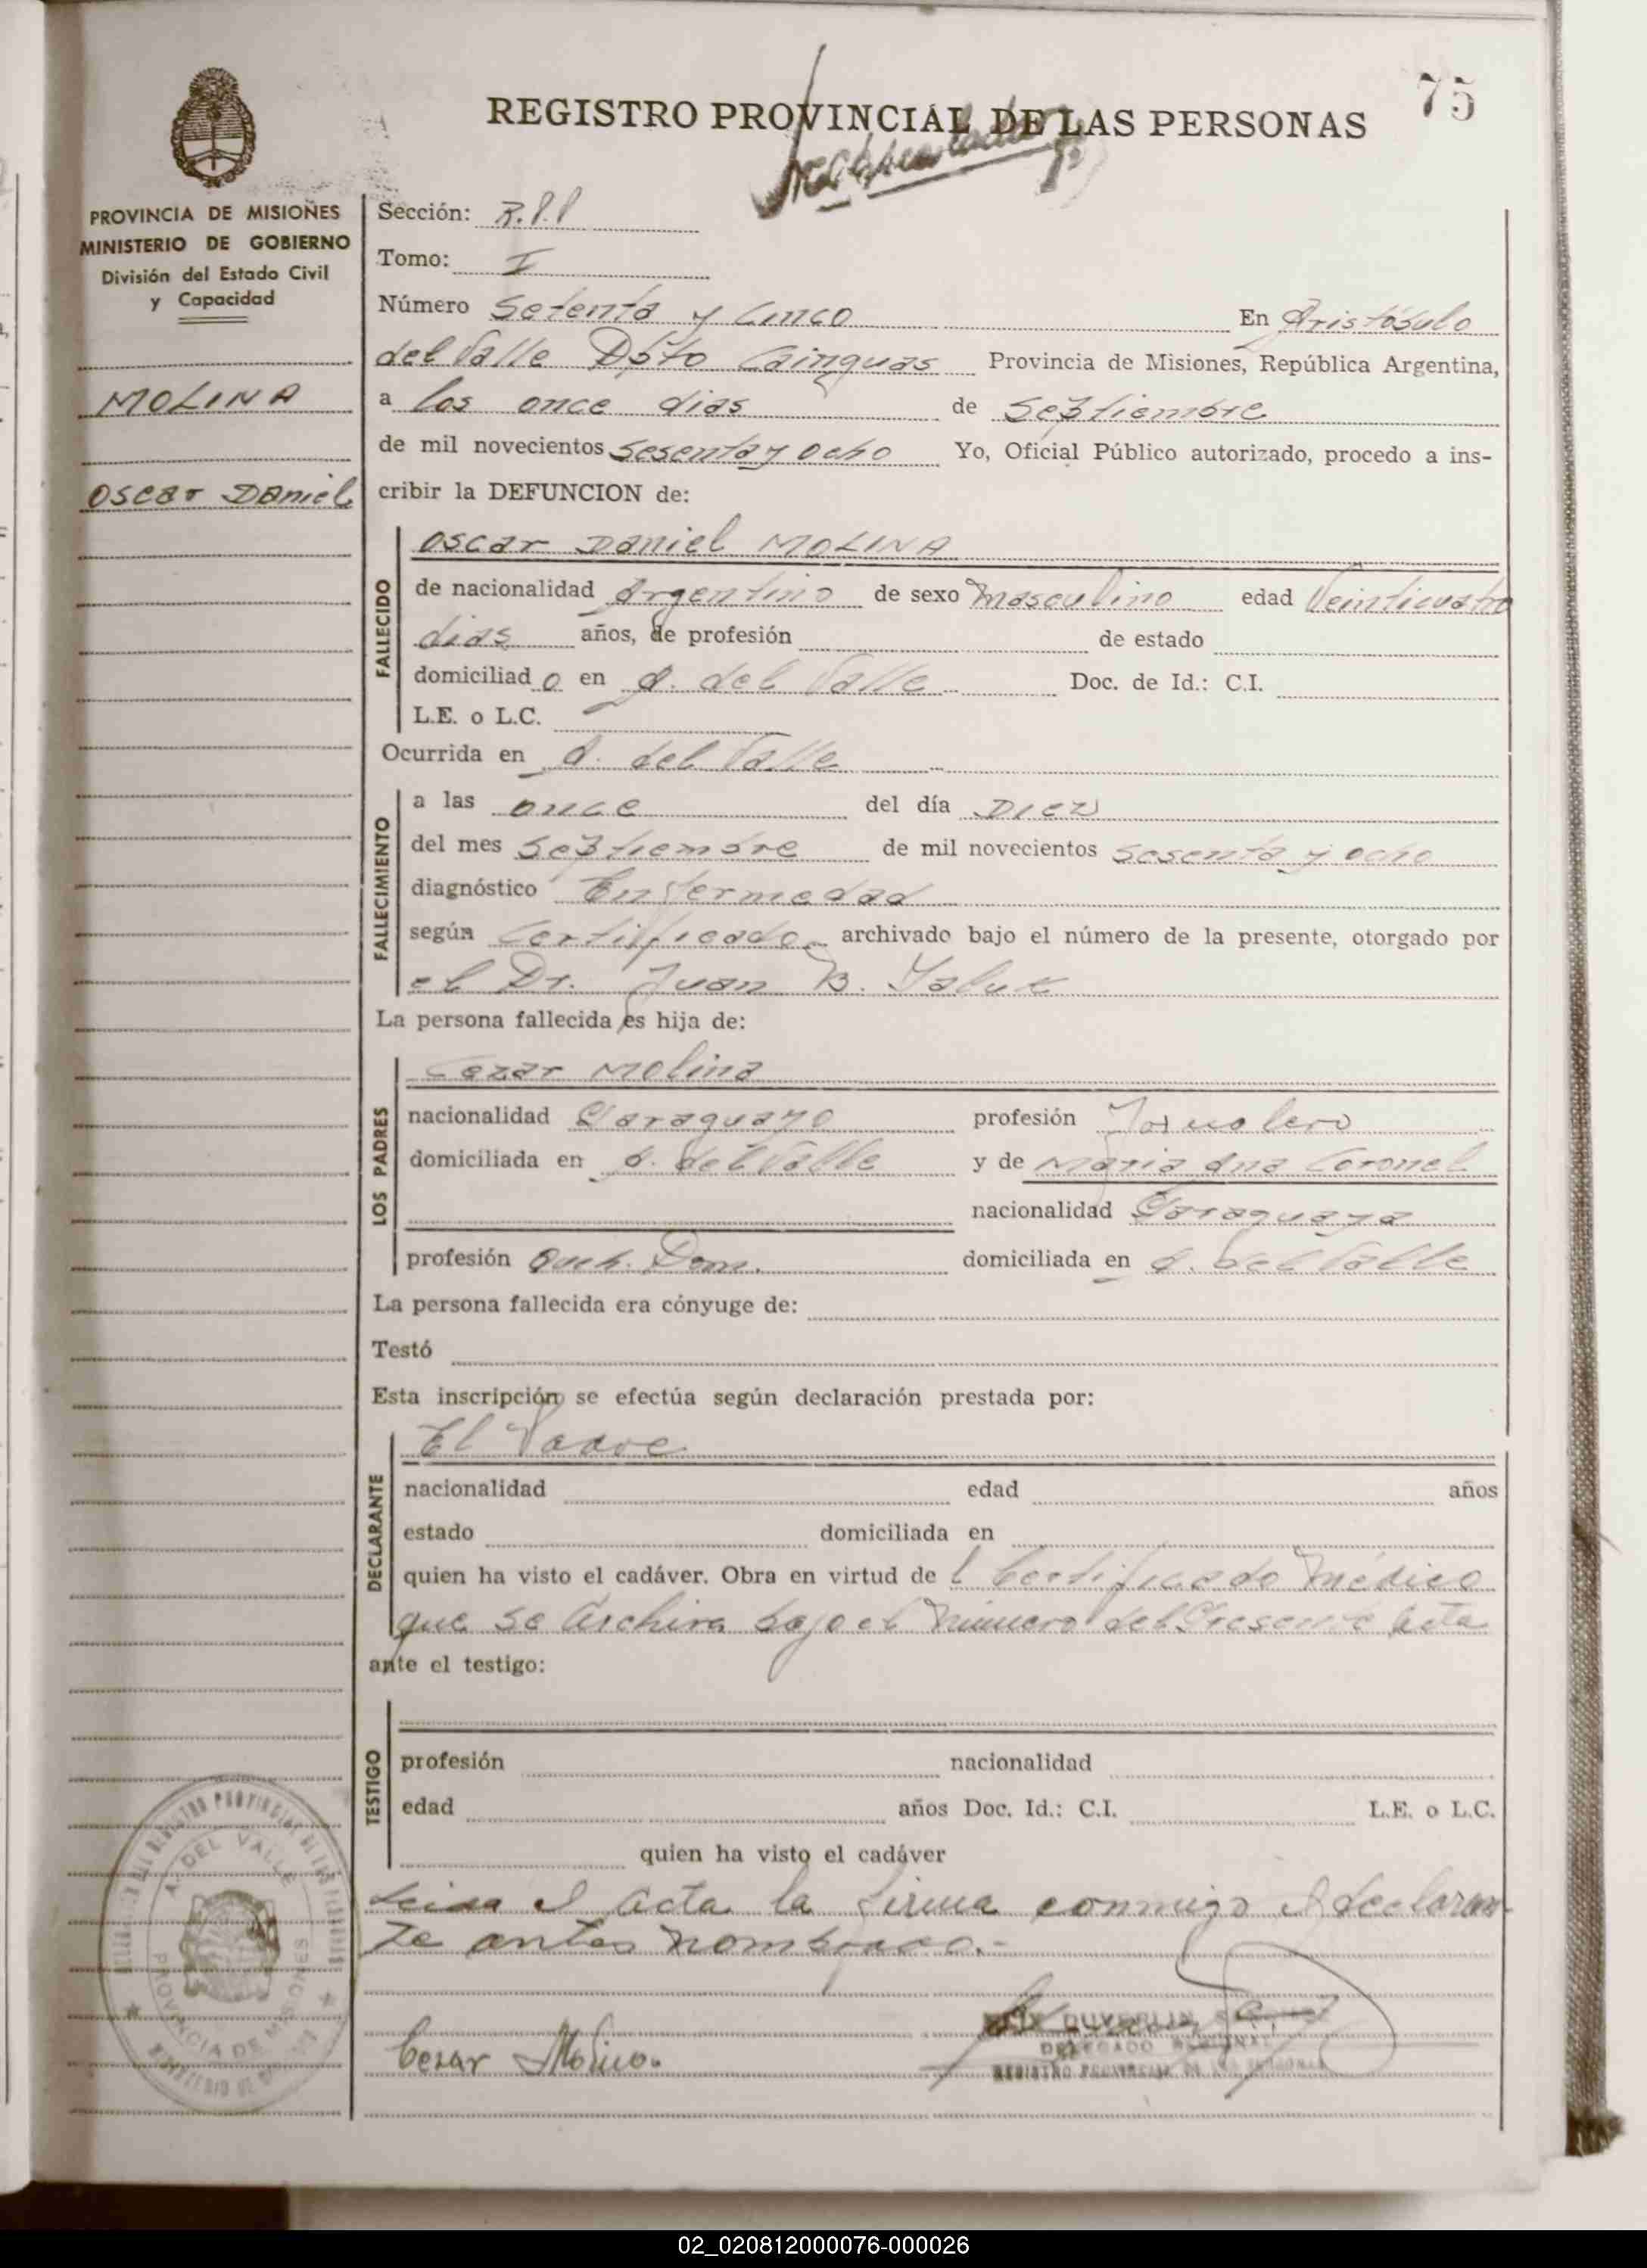 75
REGISTRO PROVINCIAL DE LAS PERSONAS
PROVINCIA DE MISIONES
MINISTERIO DE GOBIERNO
División del Estado Civil
y Capacidad
MOLINA
Oscar Daniel
Sección: R.P.P
Tomo: I
Número Setenta y Cinco En Aristóbulo
del Valle Dpto Cainguas Provincia de Misiones, República Argentina,
a los once dias de Septiembre
de mil novecientos Sesenta y ocho Yo, Oficial Público autorizado, procedo a ins-
cribir la DEFUNCION de:
FALLECIDO
Oscar Daniel MOLINA
de nacionalidad Argentino de sexo masculino edad Veinticuatro
dias años, de profesión de estado
domiciliad o en A. del Valle Doc. de Id.: C.I.
L.E. o L.C.
Ocurrida en A. del Valle
FALLECIMIENTO
a las once del día Diez
del mes Septiembre de mil novecientos sesenta y ocho
diagnóstico Enfermedad
según Certificado archivado bajo el número de la presente, otorgado por
el Dr. Juan B. Yaluk
La persona fallecida es hija de:
LOS PADRES
Cezar Molina
nacionalidad Paraguayo profesión Jornalero
domiciliada en A. del Valle y de Maria Ana Coronel
nacionalidad Paraguaya
profesión Queh. Dom. domiciliada en A. del Valle
La persona fallecida era cónyuge de:
Testó
Esta inscripción se efectúa según declaración prestada por:
DECLARANTE
El Padre
nacionalidad edad años
estado domiciliada en
quien ha visto el cadáver. Obra en virtud de l Certificado Médico
que se Archiva bajo el Número del Presente Acta
ante el testigo:
TESTIGO
profesión nacionalidad
edad años Doc. Id.: C.I. L.E. o L.C.
quien ha visto el cadáver
Leida el Acta la firma conmigo el declaran-
te antes nombrado.-
Cezar Molina.
DELEGADO REGIONAL
REGISTRO PROVINCIAL DE LAS PERSONAS
A. DEL VALLE
PROVINCIA DE MISIONES
02_020812000076-000026